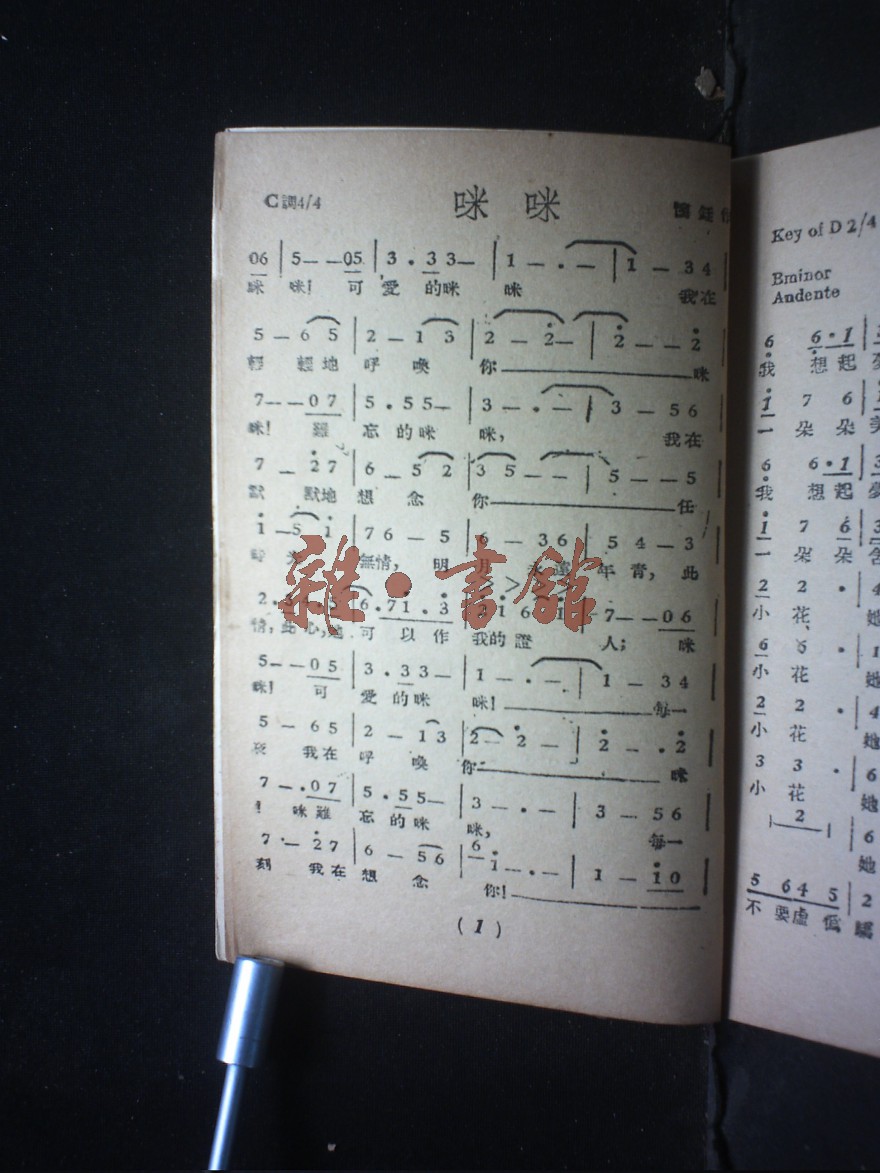 咪 咪
C調4/4
06 | 5 - - 05 | 3 · 3 3 - | 1 - · - | 1 - 3 4
咪 咪! 可 愛 的咪 咪 我在
5 - 6 5 | 2 - 1 3 | 2 - 2 - | 2 - - 2
輕 輕地 呼 喚 你 咪
7 - - 0 7 | 5 · 5 5 - | 3 - · - | 3 - 5 6
咪! 難 忘 的咪 咪, 我在
7 - 2 7 | 6 - 5 2 | 3 5 - - | 5 - - 5
默 默地 想 念 你 任
1 - 5 1 | 7 6 - 5 | 6 - 3 6 | 5 4 - 3
無情, 明 月 年 青, 此
6 · 7 1 · 3 | 1 6 1 | 7 - - 0 6
情, 此心, 可 以 作 我的 證 人; 咪
5 - - 0 5 | 3 · 3 3 - | 1 - · - | 1 - 3 4
咪! 可 愛 的咪 咪! 每一
5 - 6 5 | 2 - 1 3 | 2 - 2 - | 2 - · 2
夜 我在 呼 喚 你 咪
7 - · 0 7 | 5 · 5 5 - | 3 - · - | 3 - 5 6
! 咪難 忘 的咪 咪, 每一
7 · - 2 7 | 6 - 5 6 | 6 - 1 - · - | 1 - 1 0
刻 我在 想 念 你!
( 1 )
雜·書館
Key of D 2/4
Bminor
Andente
6 6 · 1
我 想 起
1 7 6
一 朵 朵 美
6 6 · 1 | 3
我 想 起
1 7 6 | 3
一 朵 朵
2 2 · | 4
小 花、 她
6 6 · | 1
小 花 她
2 2 · | 4
小 花 她
3 3 · | 6
小 花 她
2 | 6
她
5 6 4 5 | 2
不 要虛 騙